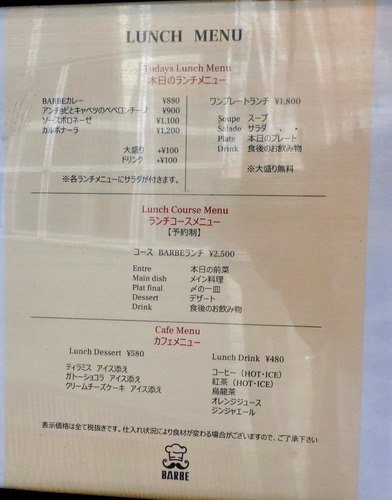 LUNCH MENU
Todays Lunch Menu
本日のランチメニュー
BARBEカレー ¥880
アンチョビとキャベツのペペロンチーノ ¥900
ソースボロネーゼ ¥1,100
カルボナーラ ¥1,200
大盛り +¥100
ドリンク +¥100
※各ランチメニューにサラダが付きます。
ワンプレートランチ ¥1,800
Soupe スープ
Salade サラダ
Plate 本日のプレート
Drink 食後のお飲み物
※大盛り無料
Lunch Course Menu
ランチコースメニュー
【予約制】
コース BARBEランチ ¥2,500
Entre 本日の前菜
Main dish メイン料理
Plat final 〆の一皿
Dessert デザート
Drink 食後のお飲み物
Cafe Menu
カフェメニュー
Lunch Dessert ¥580
ティラミス アイス添え
ガトーショコラ アイス添え
クリームチーズケーキ アイス添え
Lunch Drink ¥480
コーヒー (HOT・ICE)
紅茶 (HOT・ICE)
烏龍茶
オレンジジュース
ジンジャエール
表示価格は全て税抜きです。仕入れ状況により食材が変わる場合がございますので、ご了承下さい
BARBE